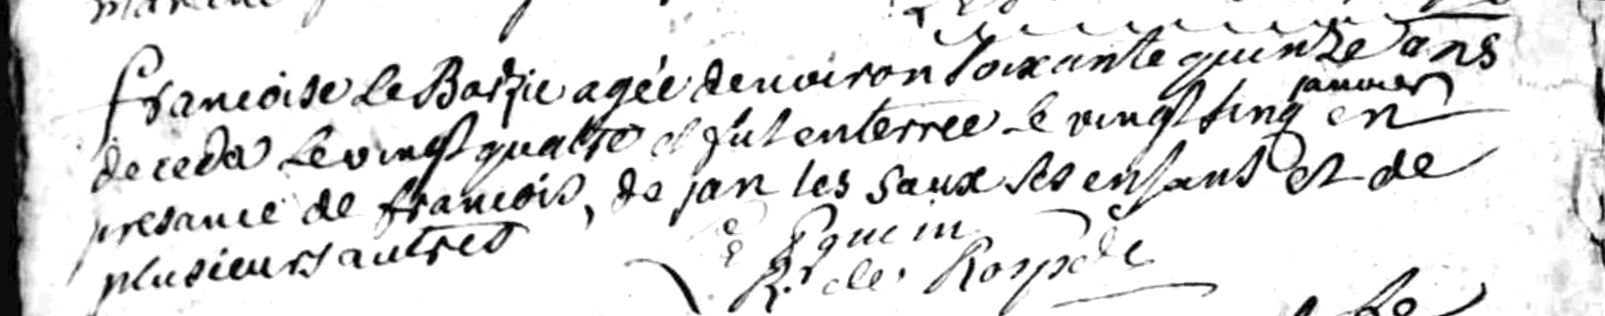 francoise Le Barzic agée denviron soixante quinze ans
deceda Le vingt quatre et fut enterree Le vingt sinq janvier en
presance de francois, de jan les saux ses enfans et de
plusieurs autres
R. de Rospde
Le